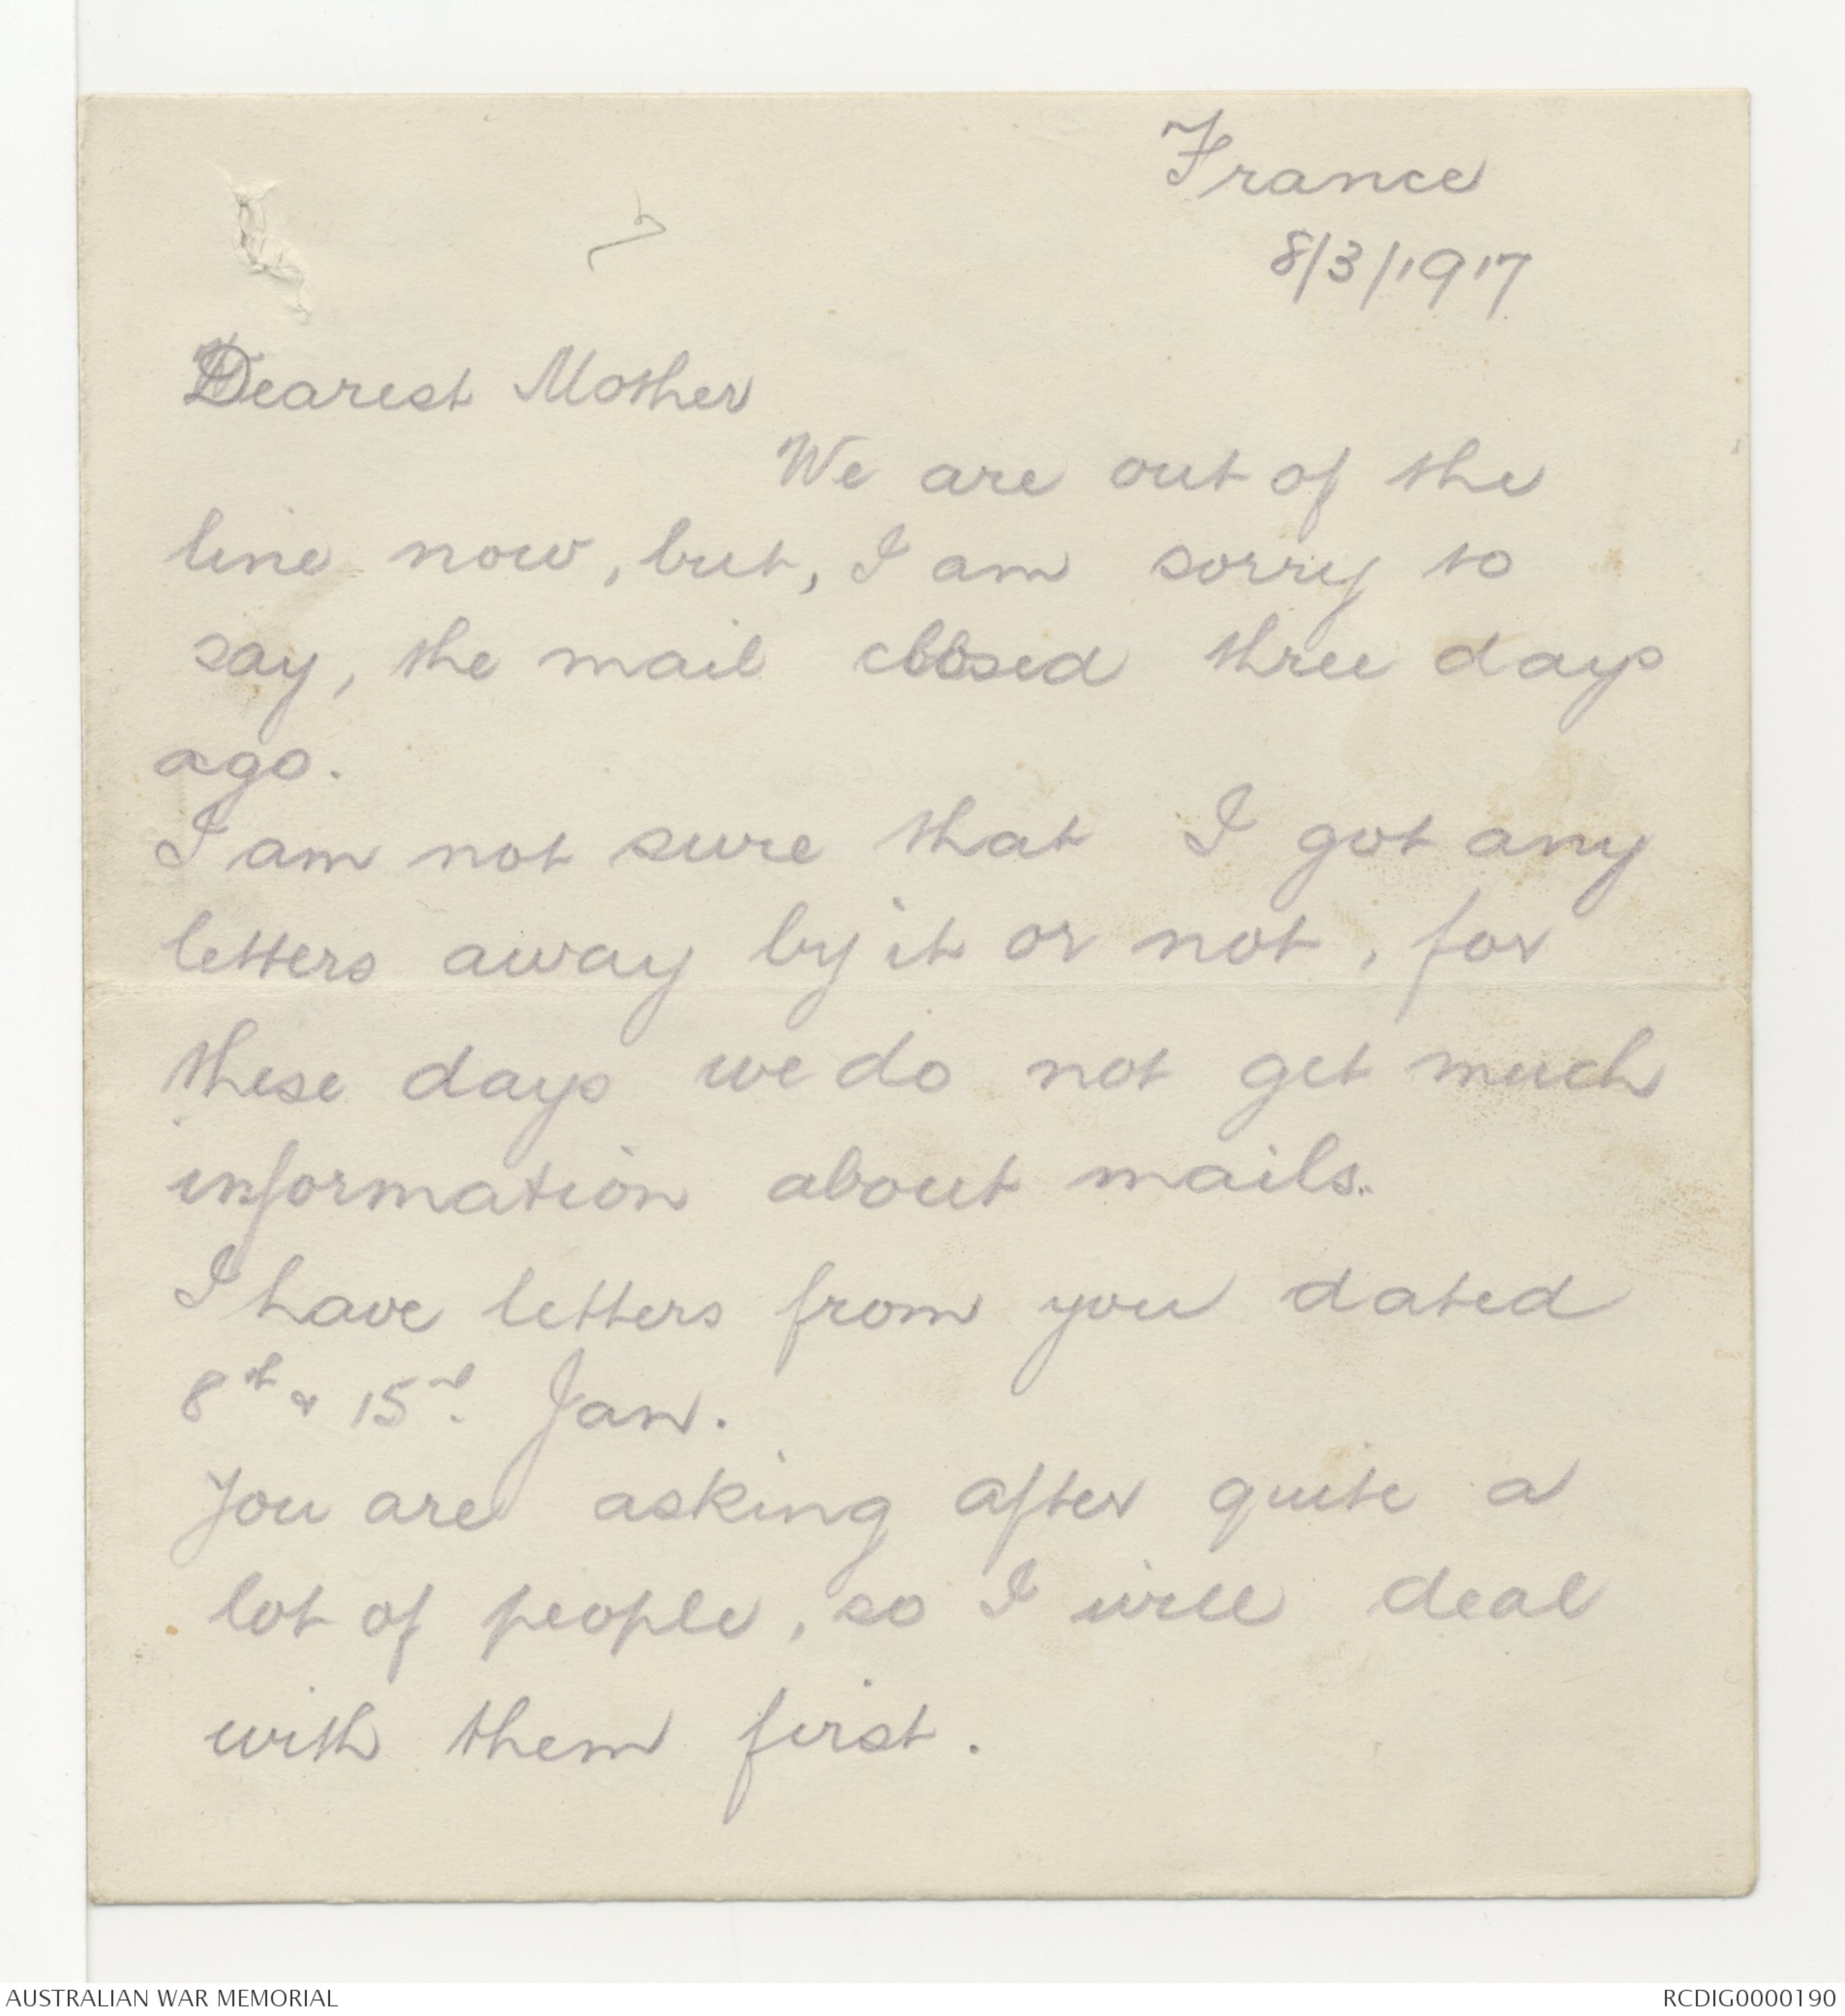 France
8/3/1917
Dearest Mother
We are out of the
line now, but, I am sorry to
say, the mail closed three days
ago.
I am not sure that I got any
letters away by it or not, for
these days we do not get much
information about mails.
I have letters from you dated
8th & 15th Jan.
You are asking after quite a
lot of people, so I will deal
with them first.
AUSTRALIAN WAR MEMORIAL
RCDIG0000190